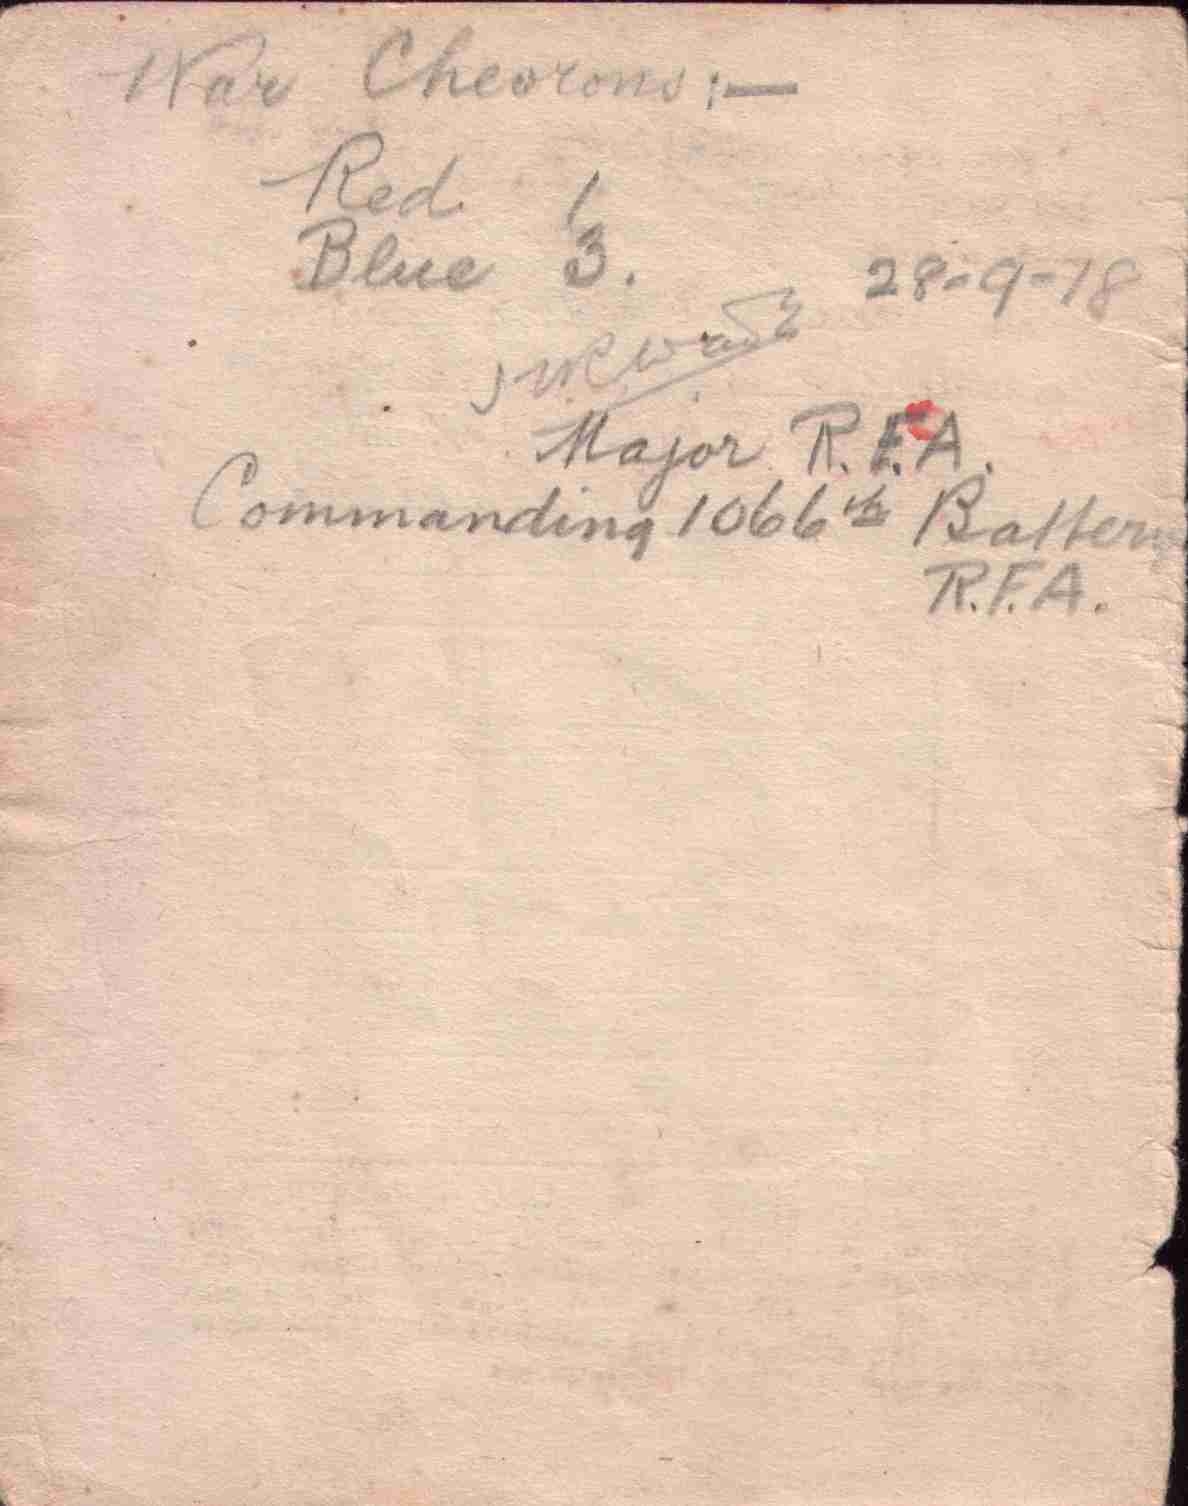 War Chevrons :—
Red 1
Blue 3.
28-9-18
Major R.F.A.
Commanding 1066th Battery
R.F.A.